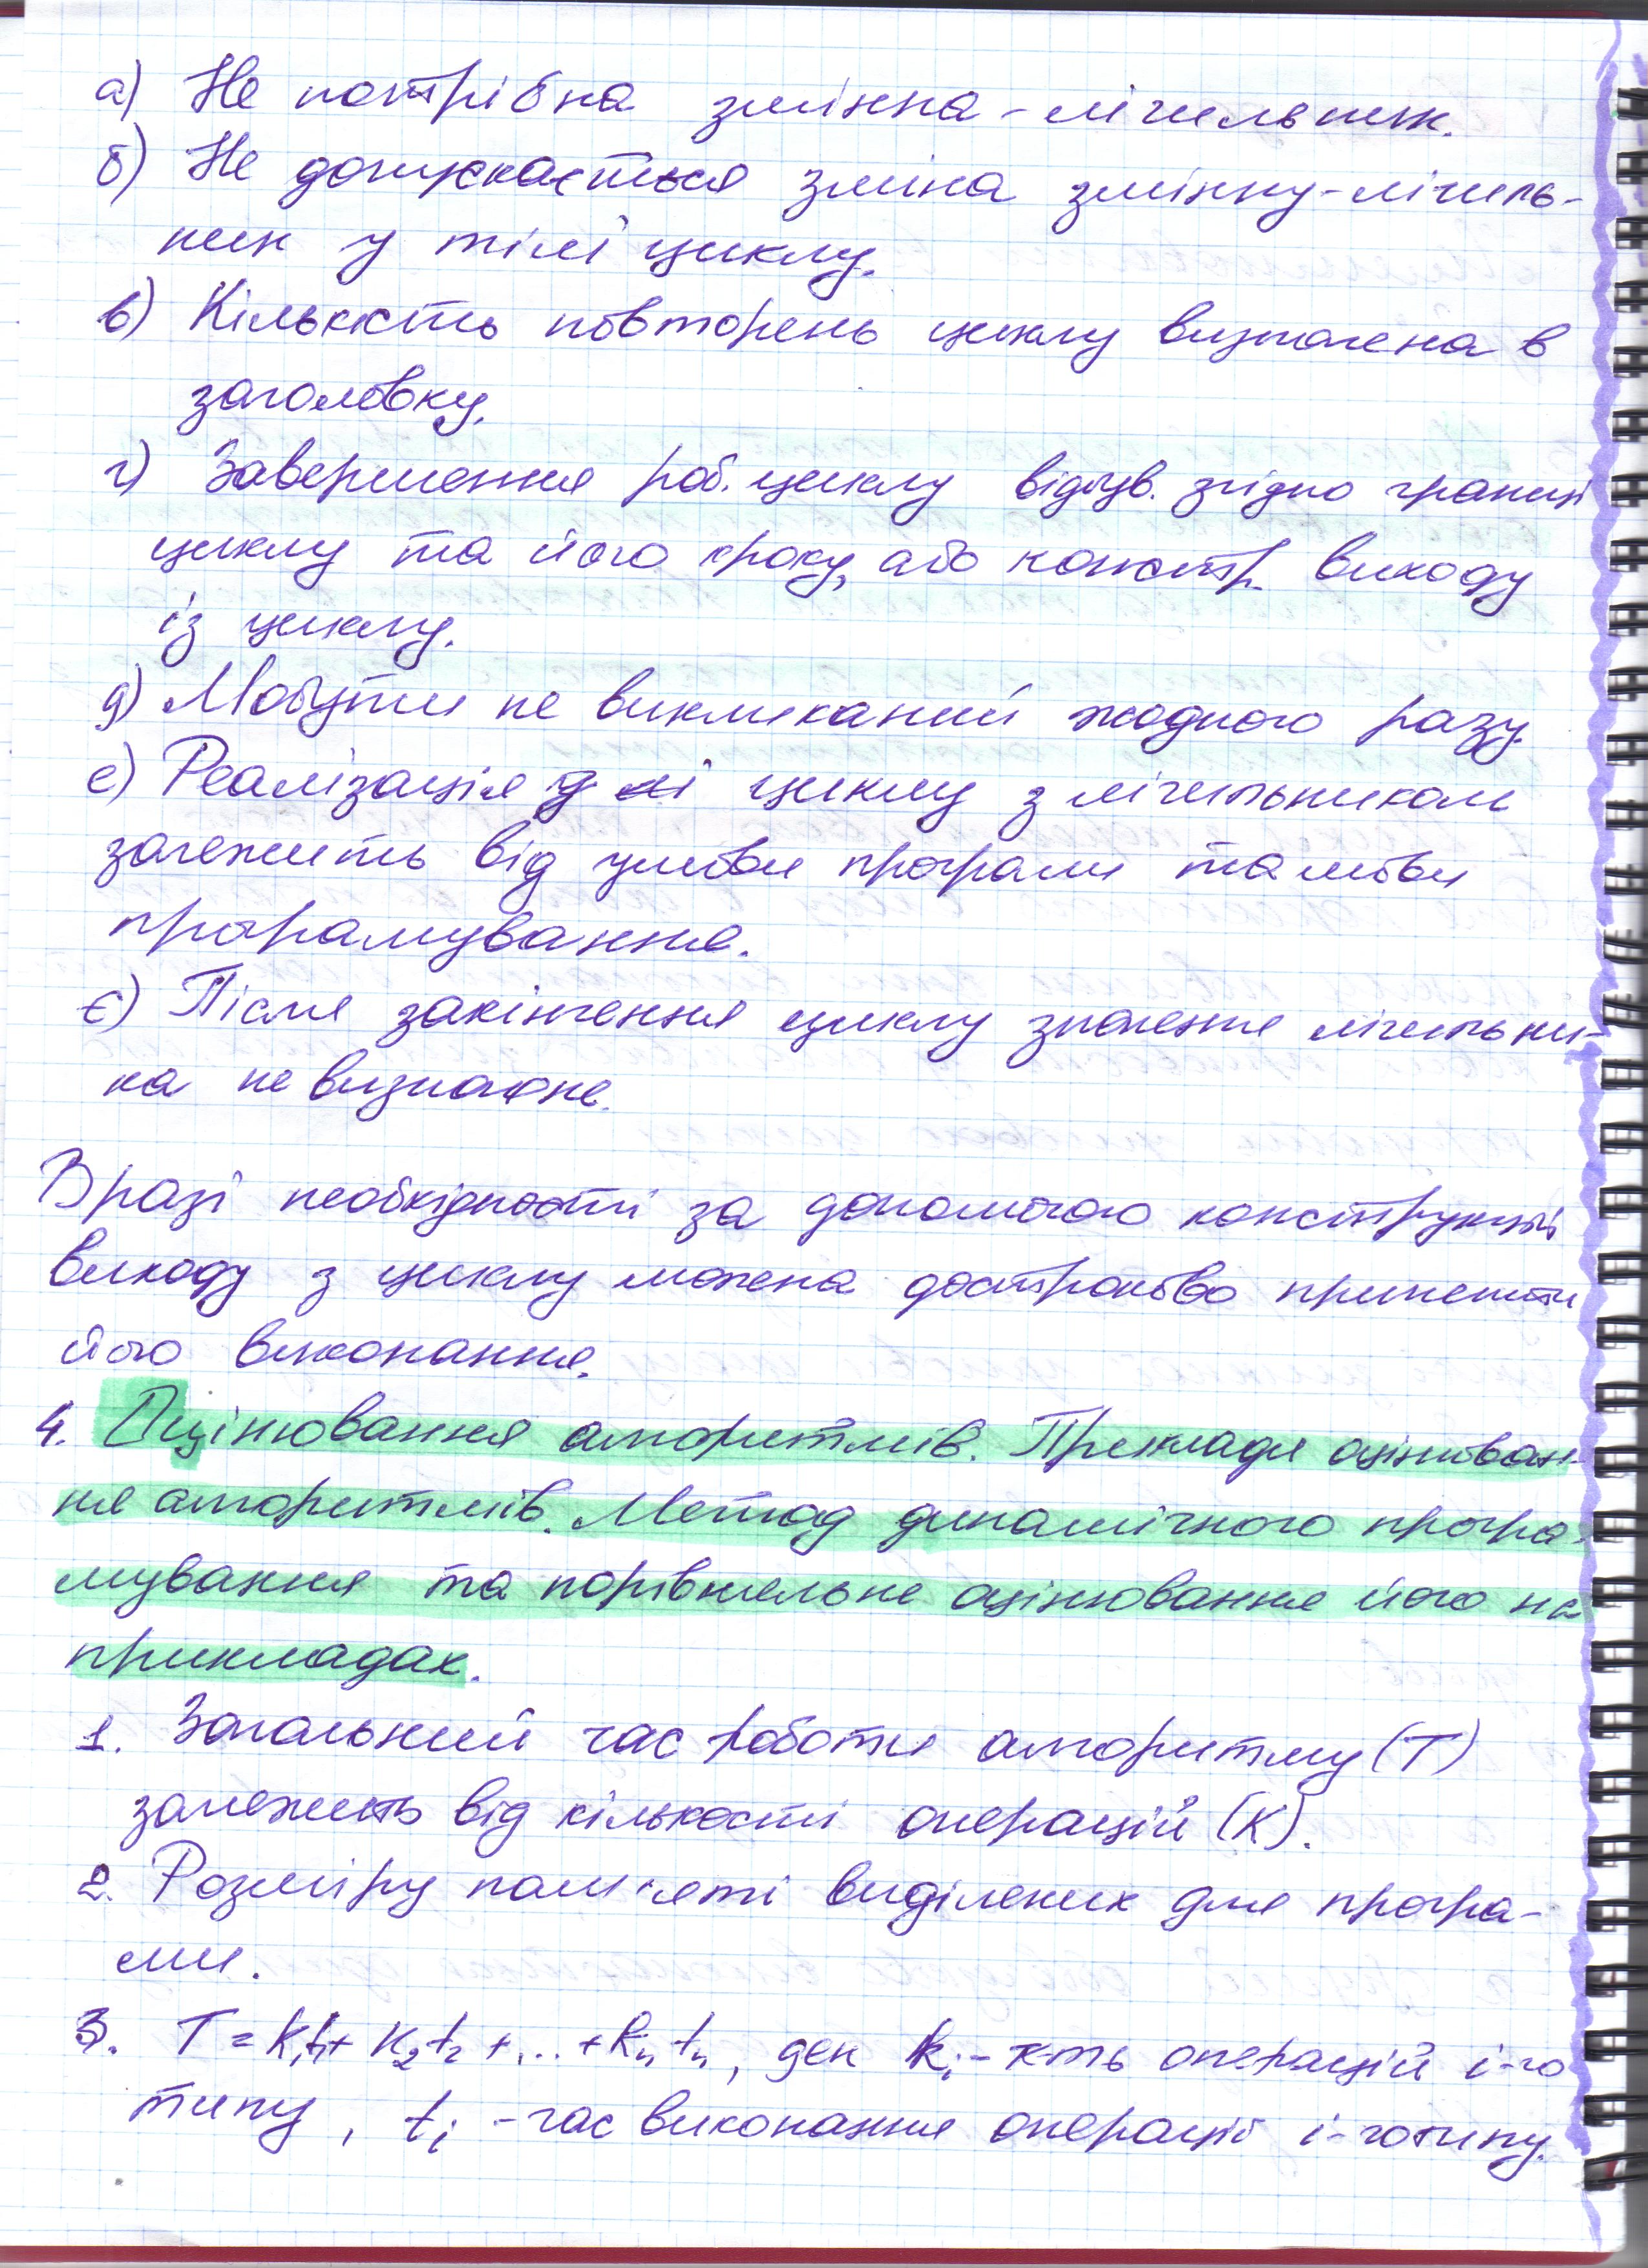 а) Не потрібна змінна-лічильник.
б) Не допускається зміна змінну-лічиль-
ник у тілі циклу.
в) Кількість повторень циклу визначена в
заголовку.
г) Завершення роб. циклу відбув. згідно границі
циклу та його кроку, або констр. виходу
із циклу.
д) Мобути не викликаний жодного разу.
е) Реалізація циклу з лічильником
залежить від умови програми та мови
програмування.
є) Після закінчення циклу значення лічильни-
ка не визначне.
В разі необхідності за допомогою конструкцій
виходу з циклу можна достроково припинити
його виконання.
4. Оцінювання алгоритмів. Приклади оцінюван-
ня алгоритмів. Метод динамічного програ-
мування та порівняльне оцінювання його на
прикладах.
1. Загальний час роботи алгоритму (T)
залежить від кількості операцій (K).
2. Розміру пам'яті виділених для програ-
ми.
3. T = k₁t₁ + k₂t₂ + ... + kₙtₙ, де kᵢ - к-ть операцій i-го
типу, tᵢ - час виконання операцій i-го типу.